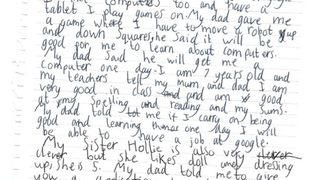 I like computers too and have a
tablet I play games on. My dad gave me
a game where I have to move a robot up
and down squares, he said it will be
good for me to learn about computers.
My dad said he will get me
computer one day. I am 7 years old and
my teachers tell my mum and dad I am
very good in class and am good
at my spelling and reading and my sums.
My dad told me if I carry on being
good and learning then one day I will
be able to have a job at google.
My sister Hollie is also very
clever but she likes doll and dressing
up, she is 5. My dad told me to give
you a